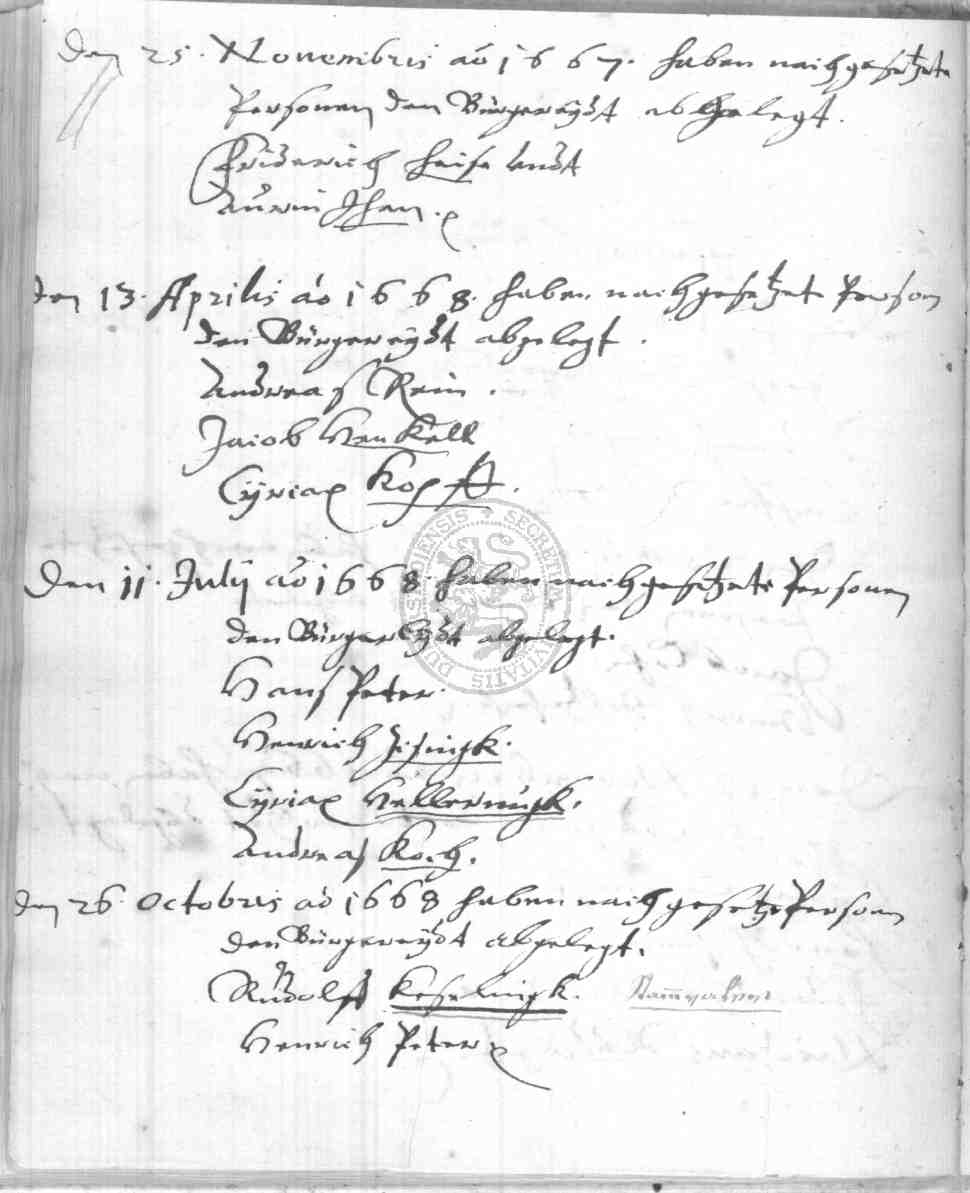 Den 25. Novembris ao 1667. haben nachgesetzte
Personen den Bürgereydt abgelegt.
Friderich Heise undt
Jhan.
Den 13. Aprilis ao 1668. haben nachgesetzete Person
den Bürgereydt abgelegt.
Andreas Rein.
Jacob Henkell
Cyriax Kopff.
Den 11. Julij ao 1668. haben nachgesetzete Personen
den Bürger Eydt abgelegt.
Hans Peter.
Henrich
Cyriax
Andreas Koch.
Den 26. Octobris ao 1668 haben nachgesetze Person
den Bürgereydt abgelegt.
Rudolff Keselingk. Stammvater
Henrich Peter
SECRETUM CIVITATIS DU